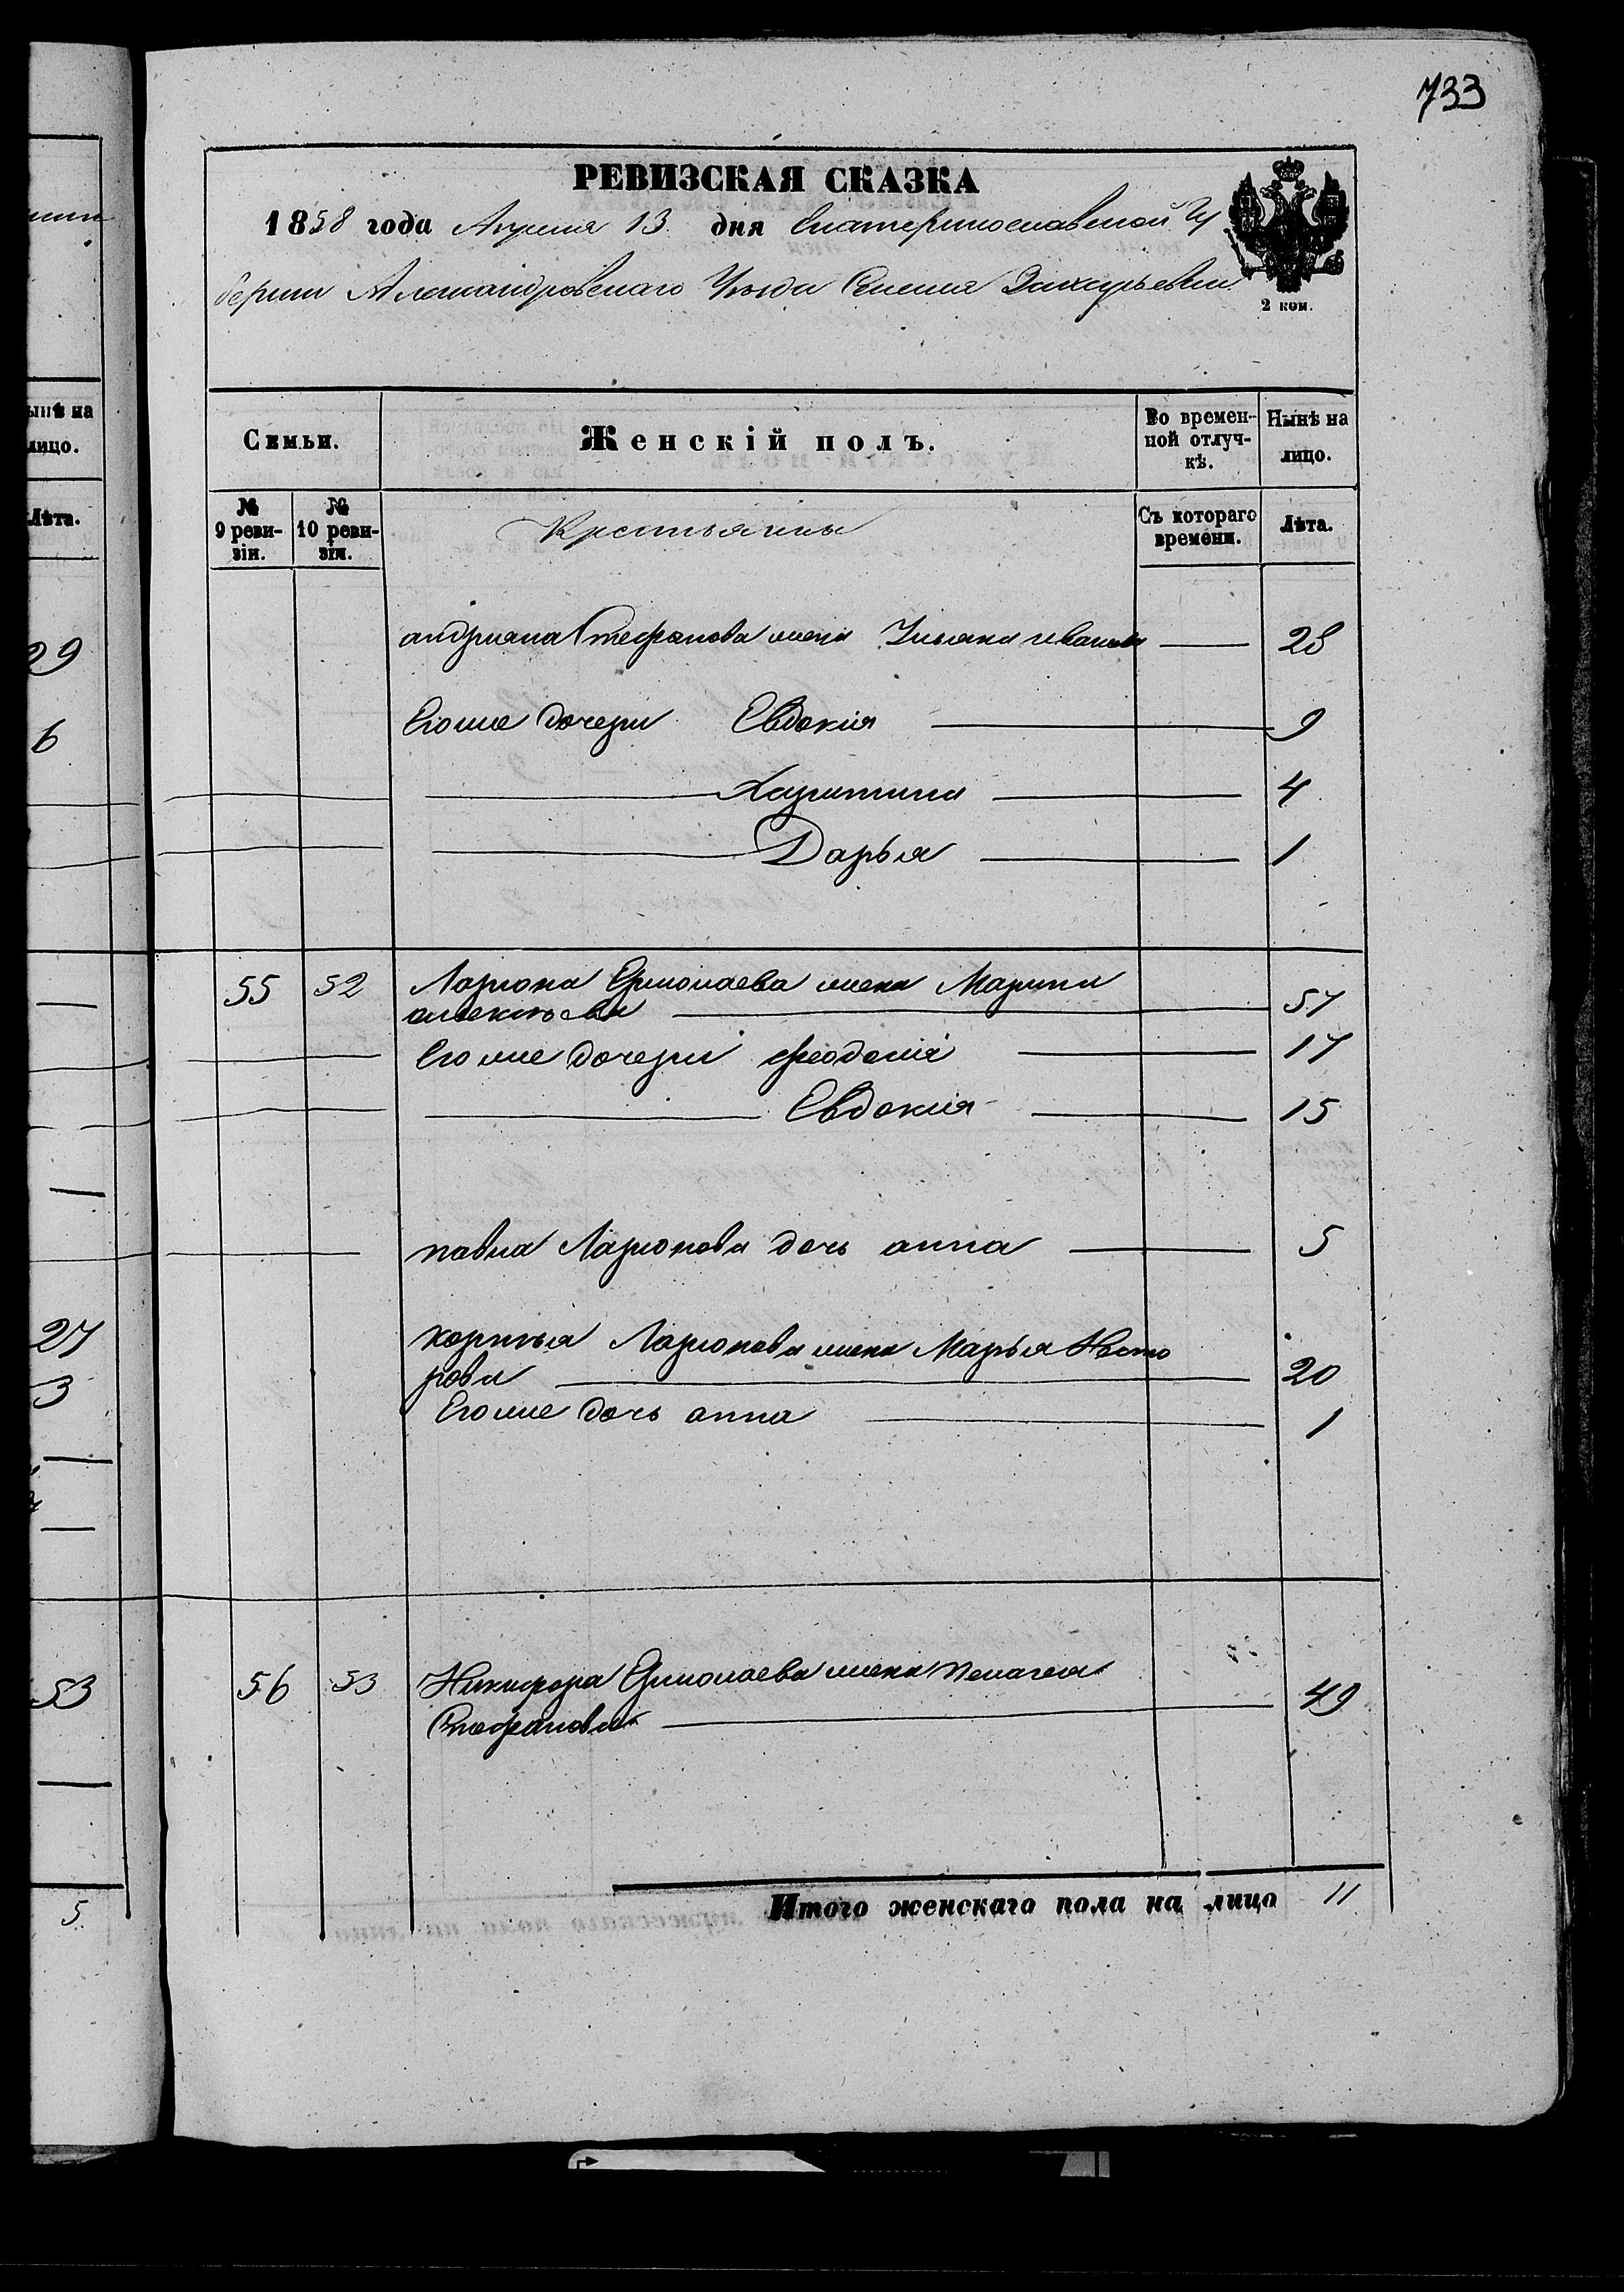 733
РЕВИЗСКАЯ СКАЗКА
1858 года Апреля 13 дня Екатеринославской Гу
бернии Александровского Уезда Селения Захарьевки
2 коп.
Семьи.
Женскій полъ.
Во времен-
ной отлуч-
кѣ.
Нынѣ на
лицо.
№
9 реви-
зіи.
№
10 реви-
зіи.
Крестьяны
Съ котораго
времени.
Лѣта.
андрияна Стефанова жена Ульяна иванова 28
Егоже дочери Евдокія 9
Харитина 4
Дарья 1
55 52 Лариона Ермолаева жена Марина
алексѣева 57
Егоже дочери феодосія 17
Евдокия 15
павла Ларионова дочь анна 5
Ларионова жена Марья Несто
рова 20
Егоже дочь анна 1
56 53 Никифора Ермолаева жена пелагея
Стефанова 49
Итого женскаго пола на лицо 11
ынѣ на
лицо.
Лѣта.
29
6
27
3
53
5